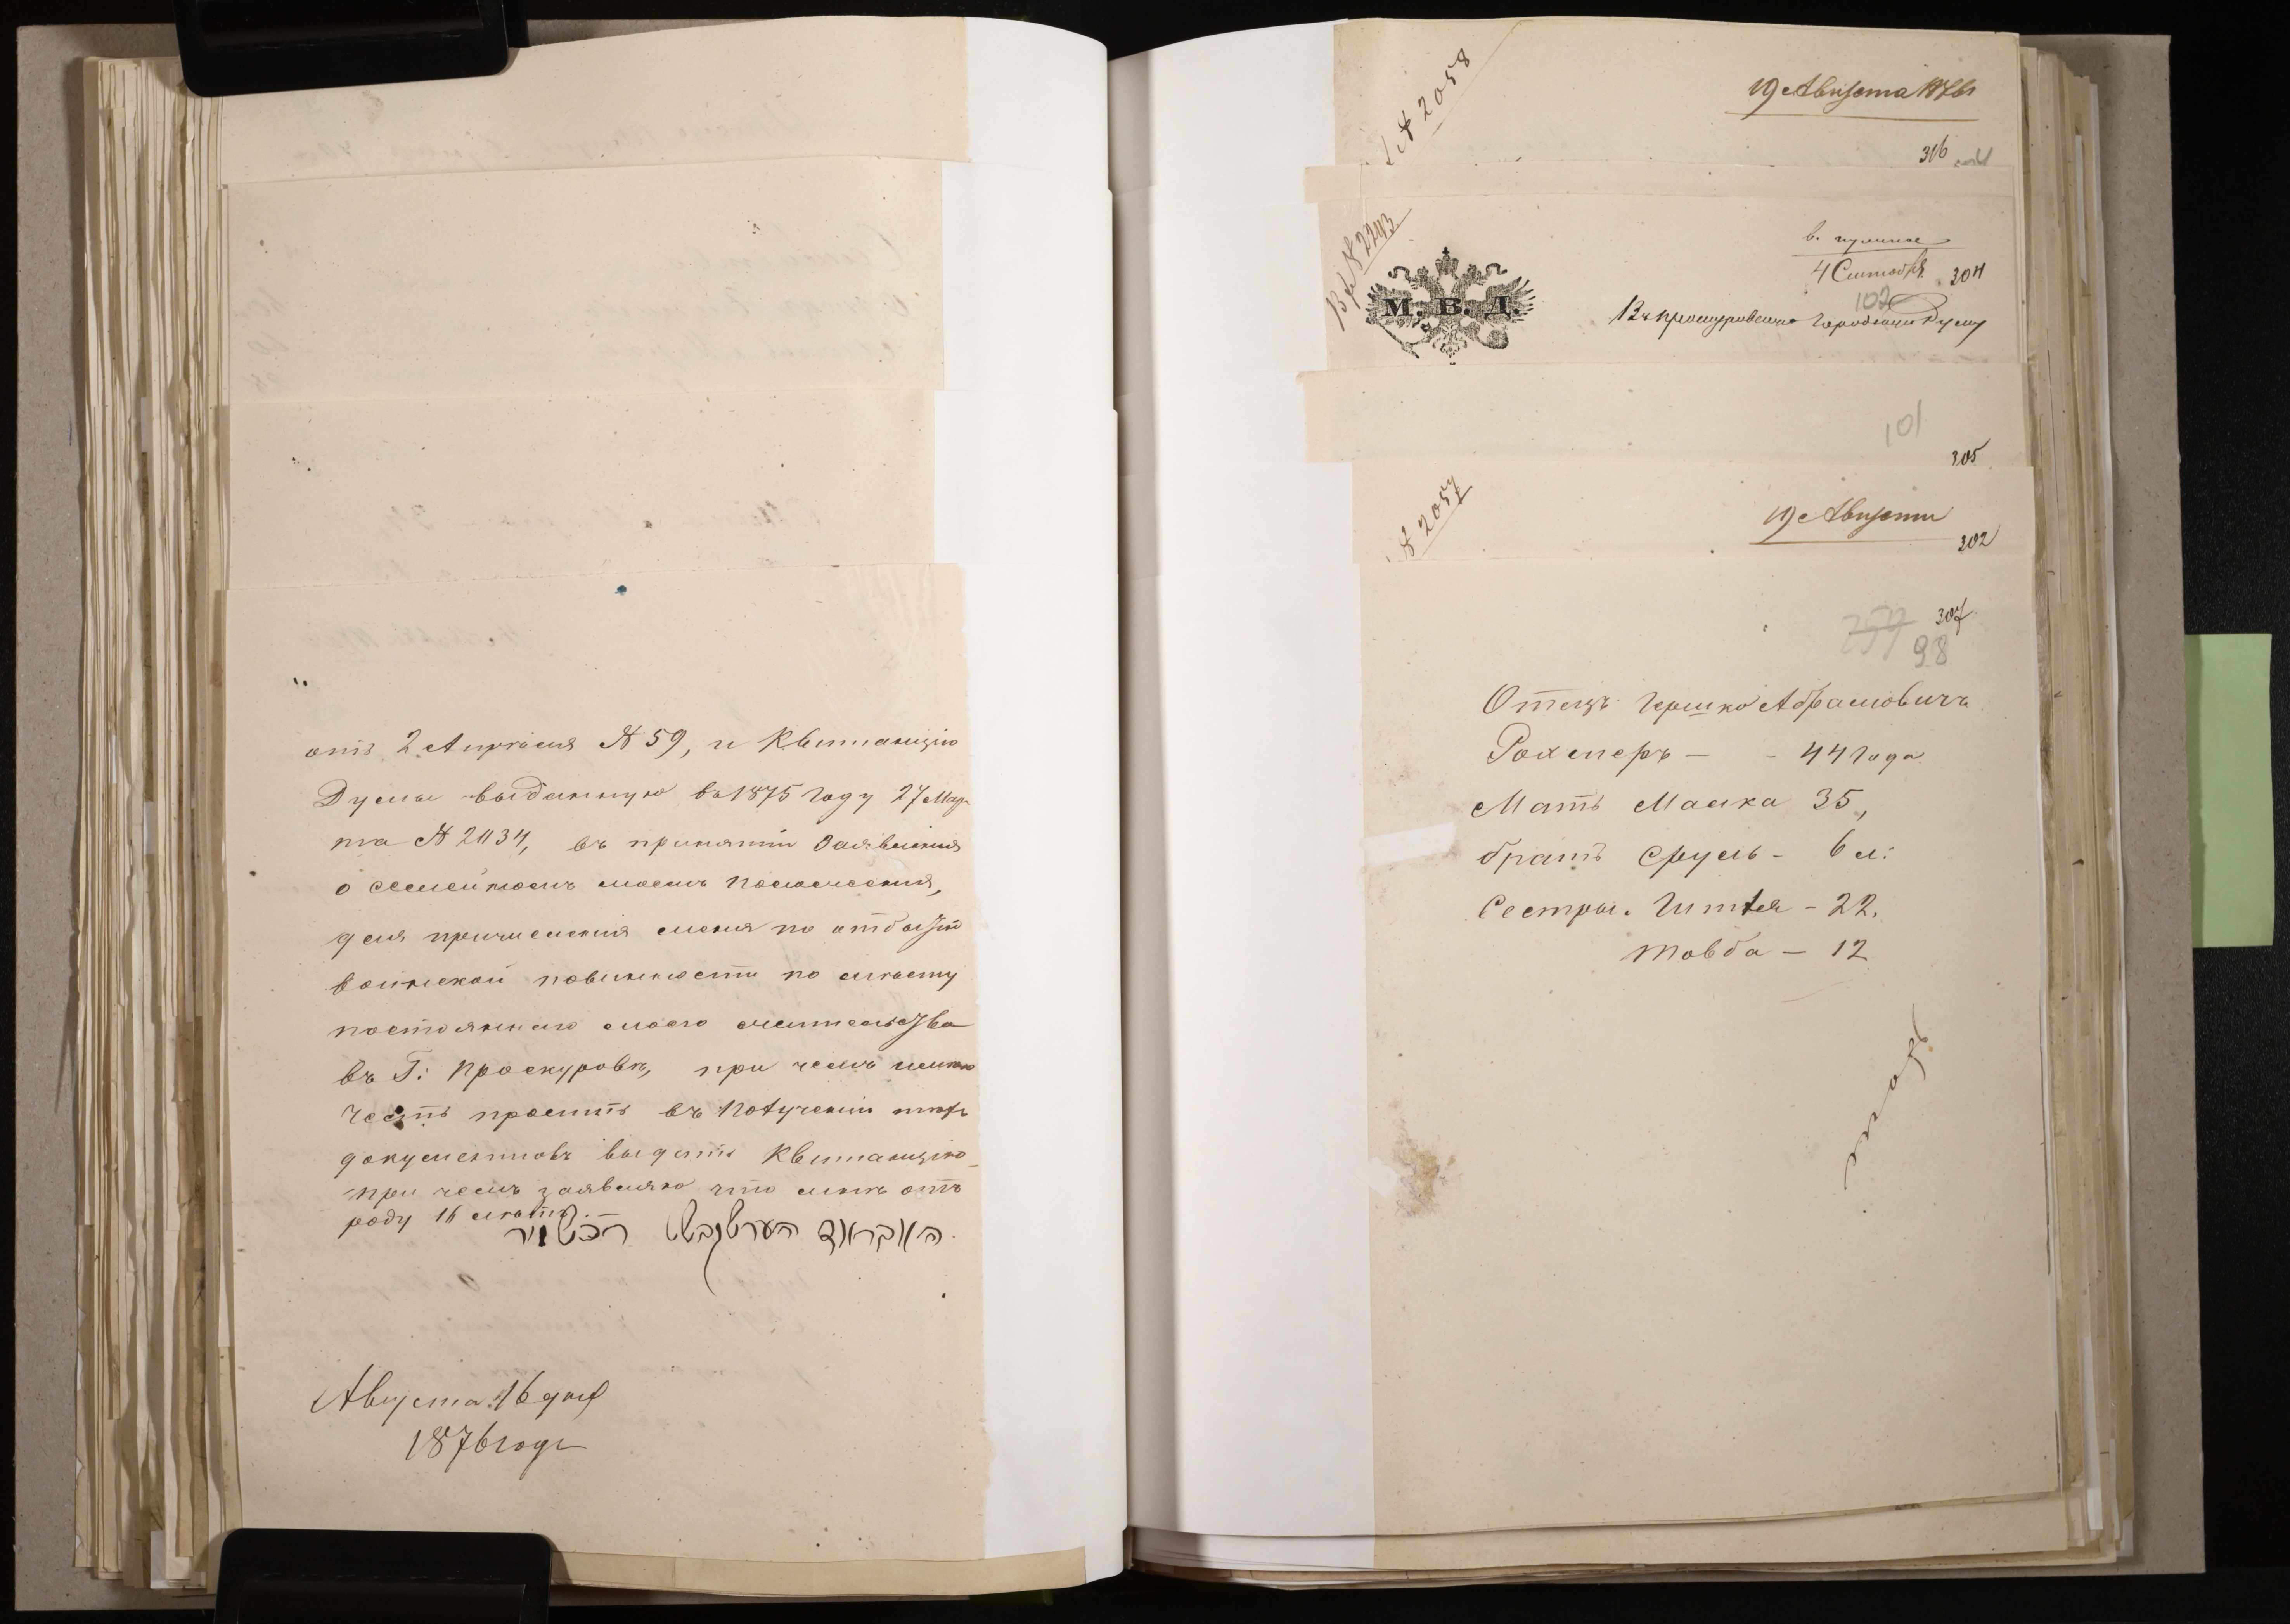 отъ 2 Апрѣля № 59, и Квитанцію
Думы выданную въ 1875 году 27 Мар
та № 2034, въ принятіи Заявленія
о семейномъ моемъ положеніи,
для причисленія меня по отбытію
воинской повинности по мѣсту
постояннаго моего жительства
въ Г: Проскуровѣ, при чемъ имѣю
честь просить въ Полученіи
документовъ выдать Квитанцію
при чемъ заявляю что мнѣ отъ
роду 16 лѣтъ.
Августа 16 дня
1876 года
№ 2058
19 Августа 1876
316
Вх № 2243
4 Сентября 304
102
М. В. Д.
Въ Проскуровскую Городскую Думу
101
305
№ 2057
19 Августа
302
307
98
Отецъ Гершко Абрамовичъ
44 года
Мать Малка 35,
братъ Сруль - 6 л:
Сестры. Гитля - 22.
Товба - 12